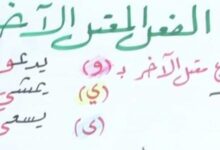 الفعل المعتل الآخر
معتل الآخر بـ (و) يدعو
(ي) يمشي
(ى) يسعى